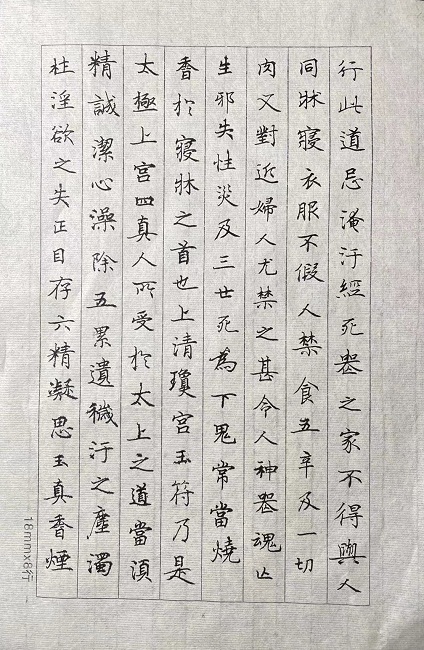 行此道忌淹汙經死器之家不得與人
同牀寢衣服不假人禁食五辛及一切
肉又對近婦人尤禁之甚令人神器魂亾
生邪失性災及三世死為下鬼常當燒
香於寢牀之首也上清瓊宮玉符乃是
太極上宮四真人所受於太上之道當須
精誠潔心澡除五累遺穢汙之塵濁
杜淫欲之失正目存六精凝思玉真香煙
18mmx8行